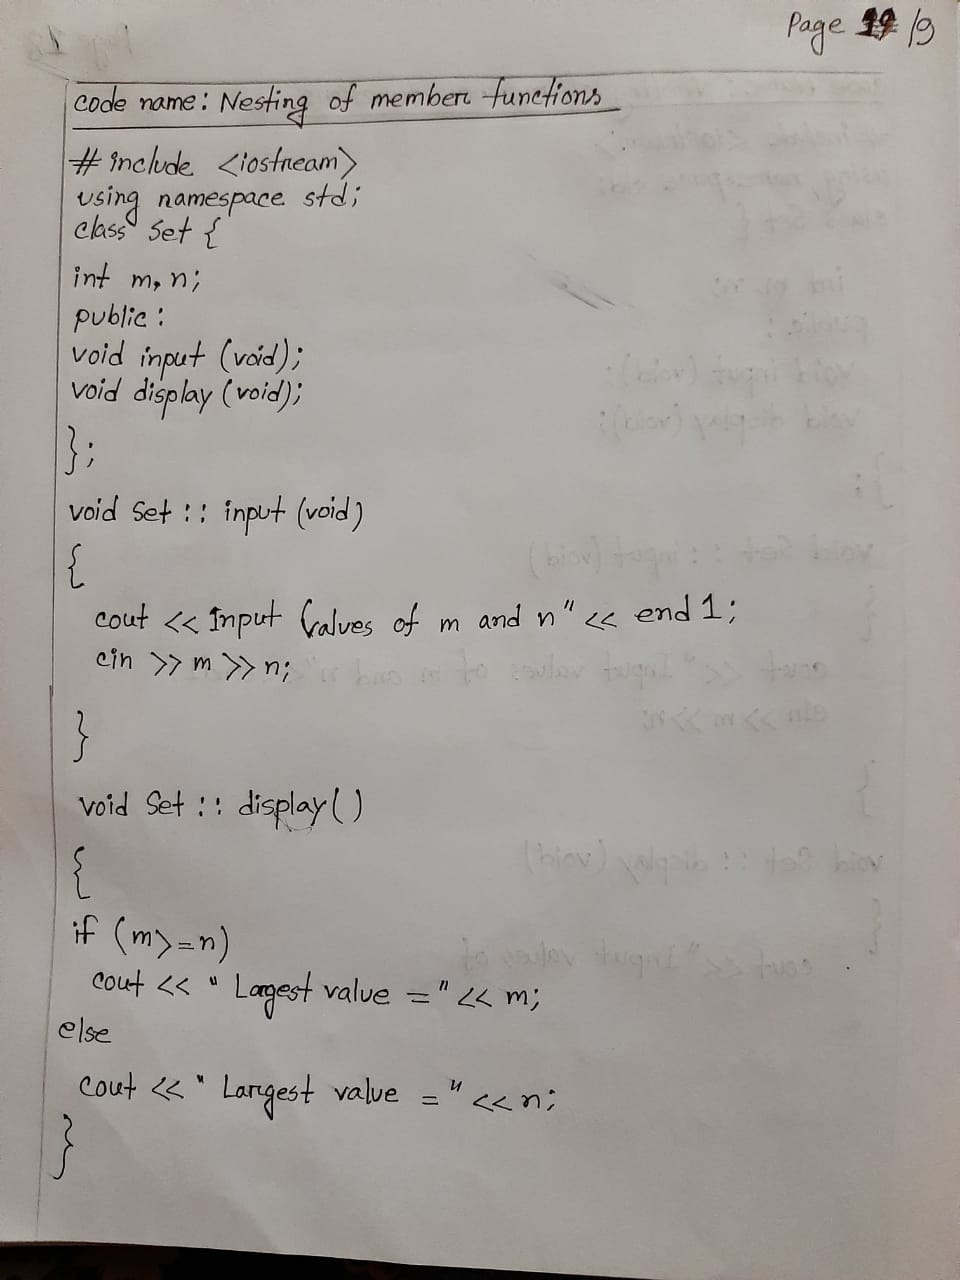 Page /9
code name: Nesting of member functions
# include <iostream>
using namespace std;
class Set {
int m, n;
public:
void input (void);
void display (void);
};
void Set :: input (void)
{
cout << Input Values of m and n" << end1;
cin >> m >> n;
}
void Set :: display()
{
if (m>=n)
cout << " Largest value =" << m;
else
cout << " Largest value =" << n;
}